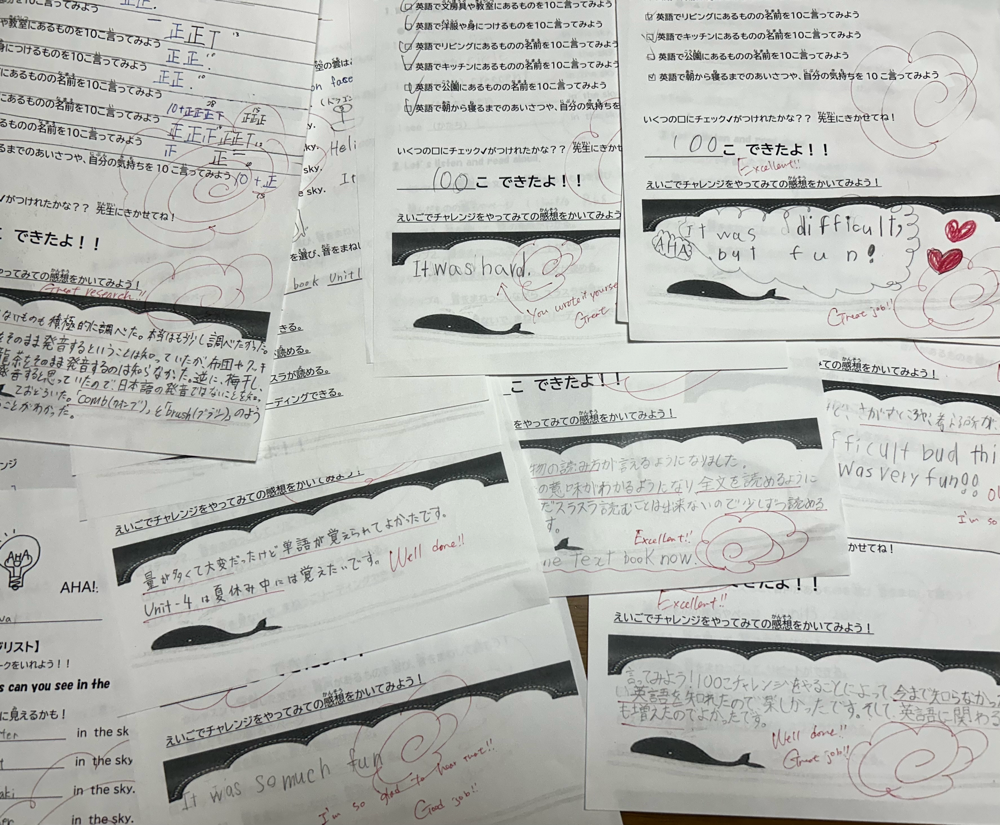 や教室にあるものを10こ言ってみよう
身につけるものを10こ言ってみよう
にあるものの名前を10こ言ってみよう
にあるものの名前を10こ言ってみよう
るものの名前を10こ言ってみよう
るまでのあいさつや、自分の気持ちを 10 こ言ってみよう
がつけれたかな?? 先生にきかせてね!
こ できたよ!!
やってみての感想をかいてみよう!
Great research!!
ないものも積極的に調べた。本当はもう少し調べたかった。
をそのまま発音するということは知っていたが、布団やクッキ
龍茶をそのまま発音するのは知らなかった。逆に、梅干し、
発音すると思っていたので日本語の発音ではないことを知
ておどろいた。"comb(コーブ)"と"brush(ブラシ)"のよう
ことがわかった。
on face
ky. Heli
sky.
e sky. It
を選び、音をまね
book Unit1
きる。
が読める。
スラが読める。
ーディングできる。
英語で文房具や教室にあるものを10こ言ってみよう
英語で洋服や身につけるものを10こ言ってみよう
英語でリビングにあるものの名前を10こ言ってみよ
英語でキッチンにあるものの名前を10こ言ってみよ
英語で公園にあるものの名前を10こ言ってみよう
英語で朝から寝るまでのあいさつや、自分の気持ちを
いくつの口にチェック✓がつけれたかな?? 先生にきかせ
100こ できたよ!!
えいごでチャレンジをやってみての感想をかいてみよう!
It was hard.
You wrote it yourse
Great
英語でリビングにあるものの名前を10こ言ってみよう
英語でキッチンにあるものの名前を10こ言ってみよう
英語で公園にあるものの名前を10こ言ってみよう
英語で朝から寝るまでのあいさつや、自分の気持ちを 10 こ言ってみよう
いくつの口にチェック✓がつけれたかな?? 先生にきかせてね!
100こ できたよ!!
Excellent!!
えいごでチャレンジをやってみての感想をかいてみよう!
AHA!
It was difficult,
but fun!
Great job!!
えいごでチャレンジをやってみての感想をかいてみよう!
量が多くて大変だったけど単語が覚えられてよかったです。
Unit-4は夏休み中には覚えたいです。
Well done!!
こ できたよ!!
をやってみての感想をかいてみよう!
物の読み方が言えるようになりました。
の意味がわかるようになり全文を読めるように
だスラスラ読むことは出来ないので少しずつ読める
す。
Excellent!!
ne Text book now.
fficult bud thi
was very fun!!
I'm so
かせてね!
できたよ!!
Excellent!!
えいごでチャレンジをやってみての感想をかいてみよう!
言ってみよう!100こチャレンジをやることによって、今まで知らなかっ
い英語を知れたので楽しかったです。そして英語に関わる
も増えたのでよかったです。
Well done!!
Great job!!
えいごでチャレンジをやってみての感想をかいてみよう!
It was so much fun
I'm so glad to hear that!!
Good job!!
ンジ
AHA
AHA!
ブリスト】
ークをいれよう!!
s can you see in the
に見えるかも!
in the sk
in the sky
in the sky.
in the sky.